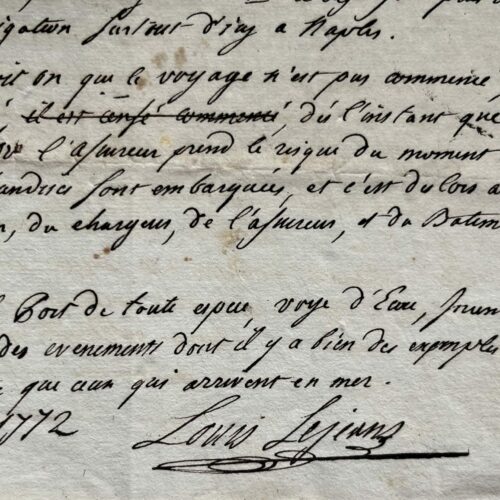 igation surtout d'icy a Naples.
oit on que le voyage n'est pas commencé,
il est censé commencé, dès l'instant que
l'assureur prend le risque du moment
andises sont embarquées, et c'est du lors a
n, du chargeur, de l'assureur, et du Batim
Port de toute espece, voye d'Eau,
des evenements dont il y a bien des exemples
que ceux qui arrivent en mer.
1772 Louis Lejeans